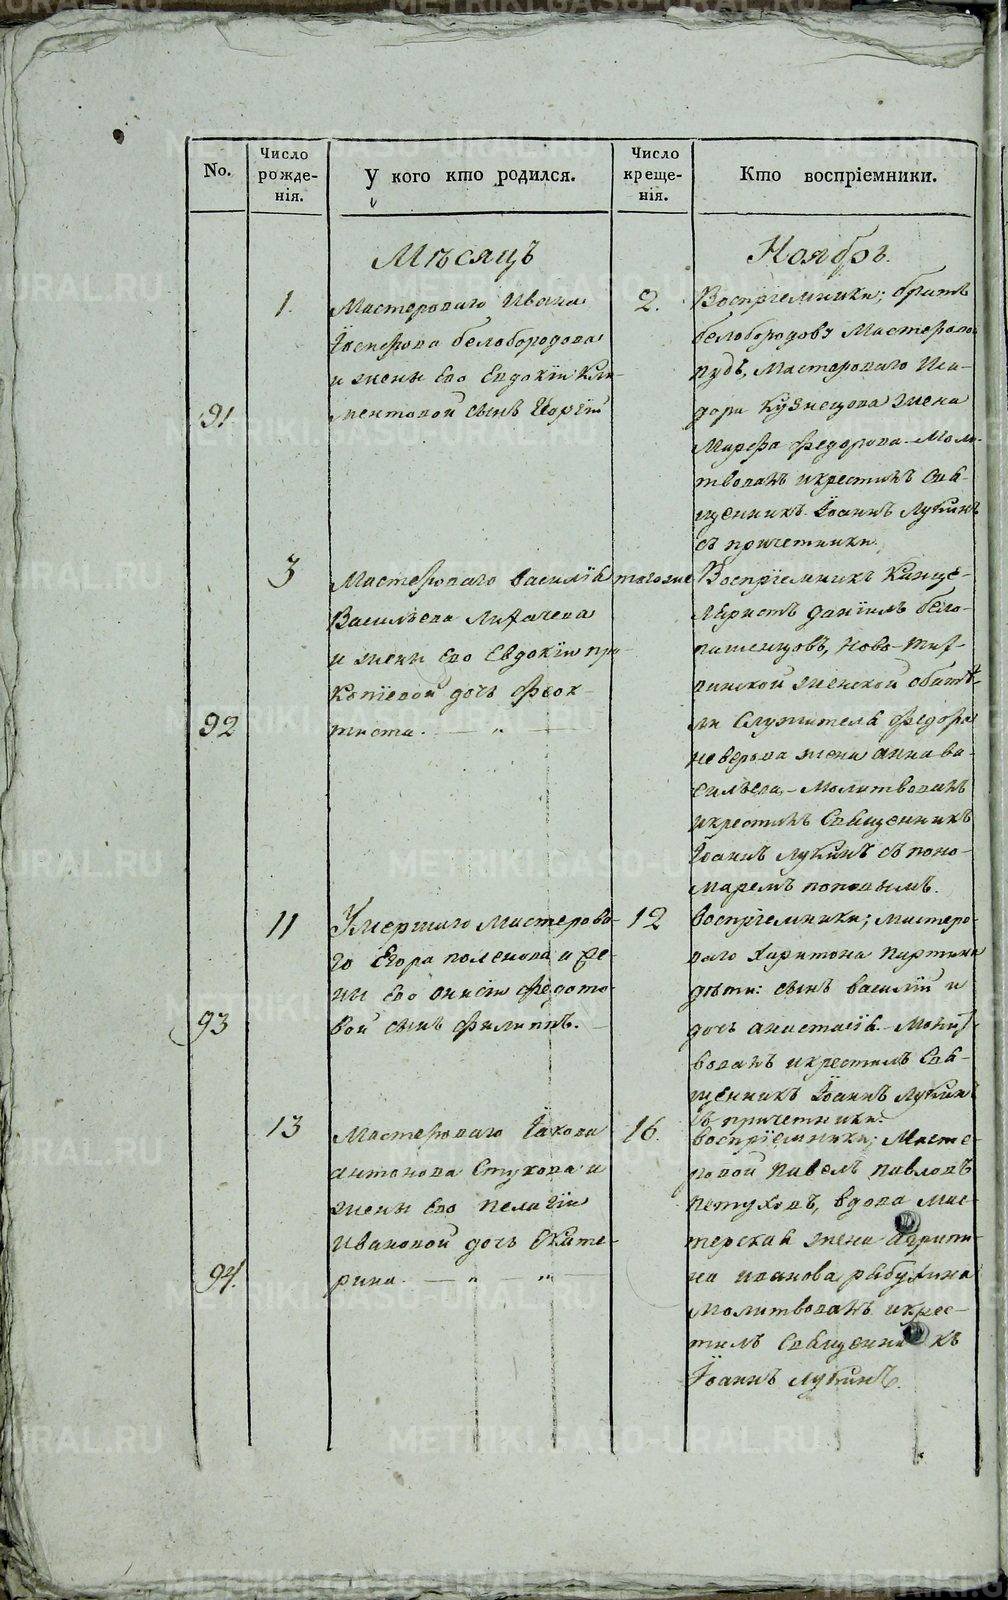 No.
Число рожде-нія.
У кого кто родился.
Число креще-нія.
Кто воспріемники.
Мѣсяцъ Ноябрь.
91
1.
Мастероваго Ивана
Белобородова
и жены Его Евдокіи Кли-
ментовой сынъ Георгій
2.
Воспріемники; братъ
белобородовъ Мастерово
Мастероваго Иси-
дора Кузнецова жена
Марфа Федорова. Моли-
твовалъ и крестилъ Свя-
щенникъ Іоаннъ Лукинъ
съ причетники.
92
3
Мастероваго василія
Васильева Лихачева
и жены Его Евдокіи про-
копіевой дочь Феок-
тиста.
тогоже
Воспріемникъ Канце-
ляристъ Даніилъ бело-
пашенцовъ, Ново-Тих-
винской женской обитѣ-
ли Служителя Федора
жена анна ва-
сильева, - Молитвовалъ
и крестилъ Священникъ
Іоаннъ Лукинъ съ поно-
маремъ поповымъ.
93
11
Умершаго мастерово-
го Егора поленова и же-
ны Его анисіи Федото-
вой сынъ Филиппъ.
12
Воспріемники; мастеро-
ваго Харитона партина
дѣти: сынъ василій и
дочь анастасія. - Молит-
вовалъ и крестилъ Свя-
щенникъ Іоаннъ Лукинъ
съ причетники.
94.
13
Мастероваго Іакова
антонова Стухова и
жены Его пелагіи
Ивановой дочь Екате-
рина.
16.
воспріемники; Масте-
ровой павелъ павловъ
петуховъ, вдова мас-
терская жена агрипи-
на иванова рыбухина
молитвовалъ и крес-
тилъ Священникъ
Іоаннъ Лукинъ.
METRIKI.GASO-URAL.RU